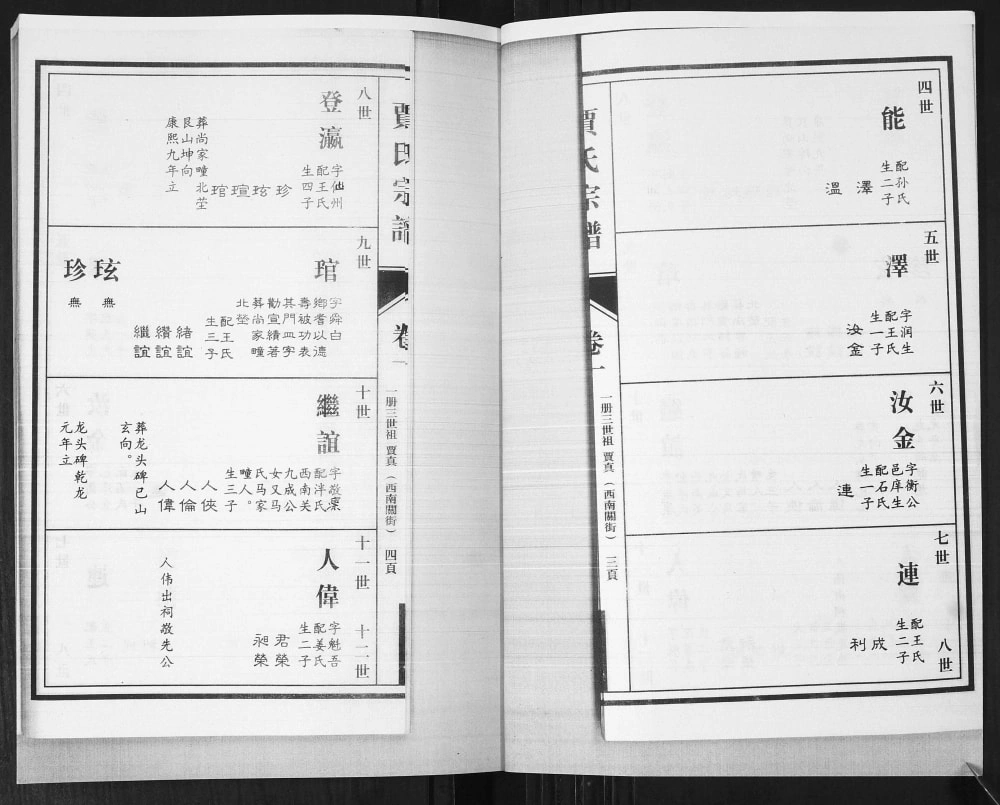 四世
能
配孙氏
生二子
澤
溫
五世
澤
字润生
配王氏
生一子
汝金
六世
汝金
字衡公
邑庠生
配石氏
生一子
連
七世
連
配王氏
生二子
成
利
八世
賈氏宗譜
卷一
一册三世祖 賈真（西南關街）
三頁
賈氏宗譜
卷一
一册三世祖 賈真（西南關街）
四頁
八世
登瀛
字仙州
配王氏
生四子
珍
玹
瑄
琯
葬尚家疃北茔
艮山坤向
康熙九年立
九世
琯
字舜白
鄉耆以德
壽被功表
其門皿字
勸宣績著
葬尚家疃
北塋
配王氏
生三子
緒誼
纘誼
繼誼
玹
無
珍
無
十世
繼誼
字敬
配泮氏
西南关
九成公
女又马
氏马家
疃人。
生三子
人俠
人倫
人偉
葬龙头碑巳山
玄向。
龙头碑乾龙
元年立
十一世
人偉
字魁吾
配姜氏
生二子
君榮
昶榮
人伟出祠敬先公
十二世